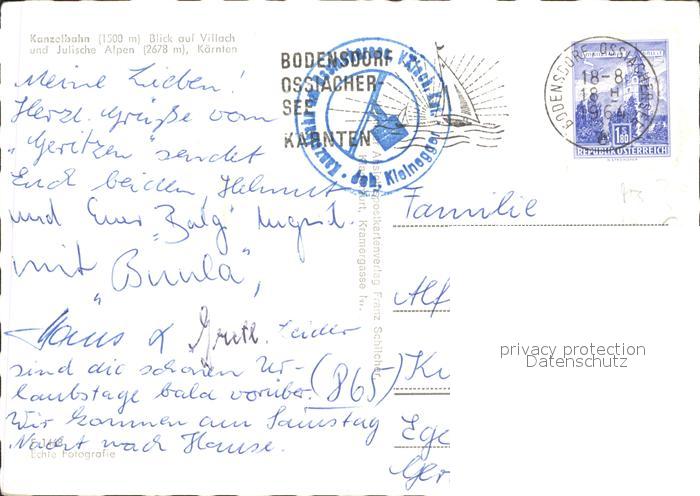 Kanzelbahn (1500 m) Blick auf Villach
und Julische Alpen (2678 m), Kärnten
Meine Lieben!
Herzl. Grüße vom
"Geritzen" sendet
Euch beiden, Helmut
und Euer "Balg" Ingrid.
mit "Bunla",
Hans & Gretl. Leider
sind die schönen Ur-
laubstage bald vorüber. (865)
Wir kommen am Samstag
Nacht nach Hause.
Echte Fotografie
BODENSDORF
OSSIACHER-
SEE
KÄRNTEN
Kleinegger
Franz Schilcher
Kramergasse
BODENSDORF
18-8
1.80
REPUBLIK ÖSTERREICH
Familie
Alf
Kr
Ege
Ger
privacy protection
Datenschutz